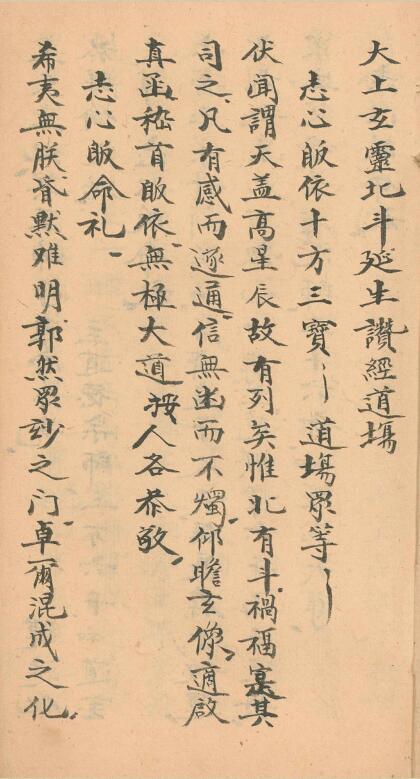 大上玄靈北斗延生讚經道場
志心皈依十方三寶〻道場眾等〻
伏聞謂天盖高星辰故有列矣惟北有斗禍福寔其
司之凡有感而遂通信無幽而不燭仰瞻玄像適啟
真函稽首皈依無極大道按人各恭敬
志心皈命礼
希夷無朕昏默难明郭然眾妙之门卓爾混成之化